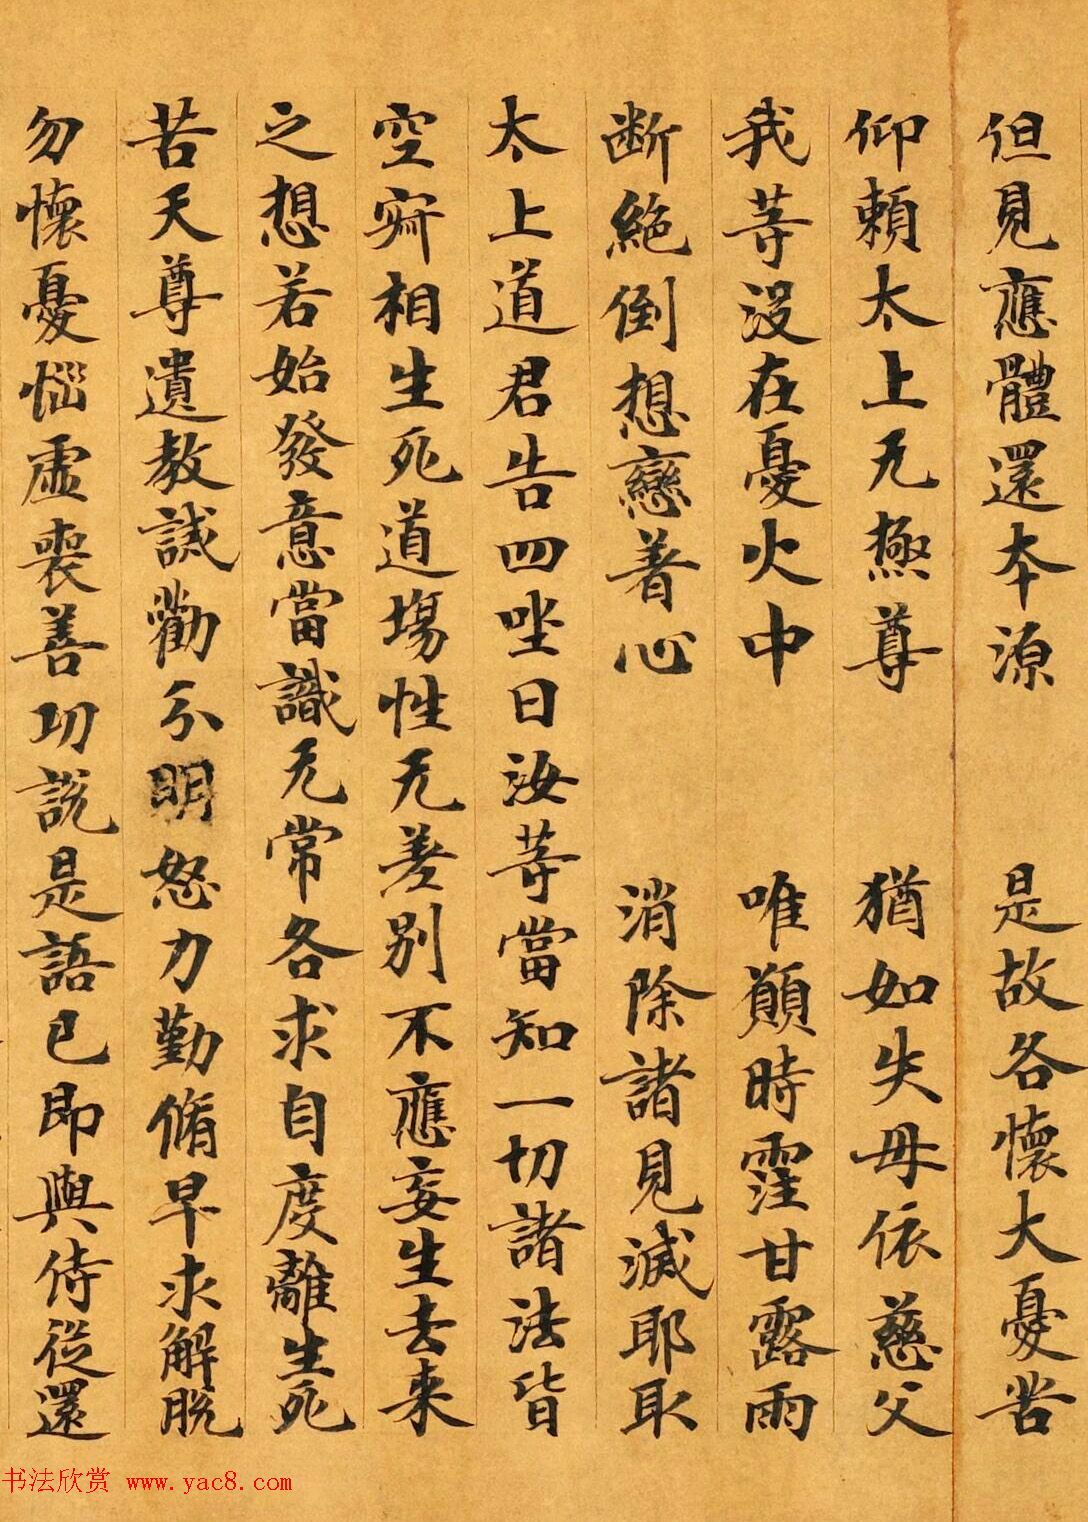 但見應體還本源　是故各懷大憂苦
仰賴太上无極尊　猶如失母依慈父
我等沒在憂火中　唯願時霔甘露雨
断絕倒想戀著心　消除諸見滅耶取
太上道君告四坐曰汝等當知一切諸法皆
空寂相生死道場性无差別不應妄生去来
之想若始發意當識无常各求自度離生死
苦天尊遺教誡勸分明怒力勤脩早求解脫
勿懷憂惱虛喪善功說是語已即與侍從還
书法欣赏 www.yac8.com